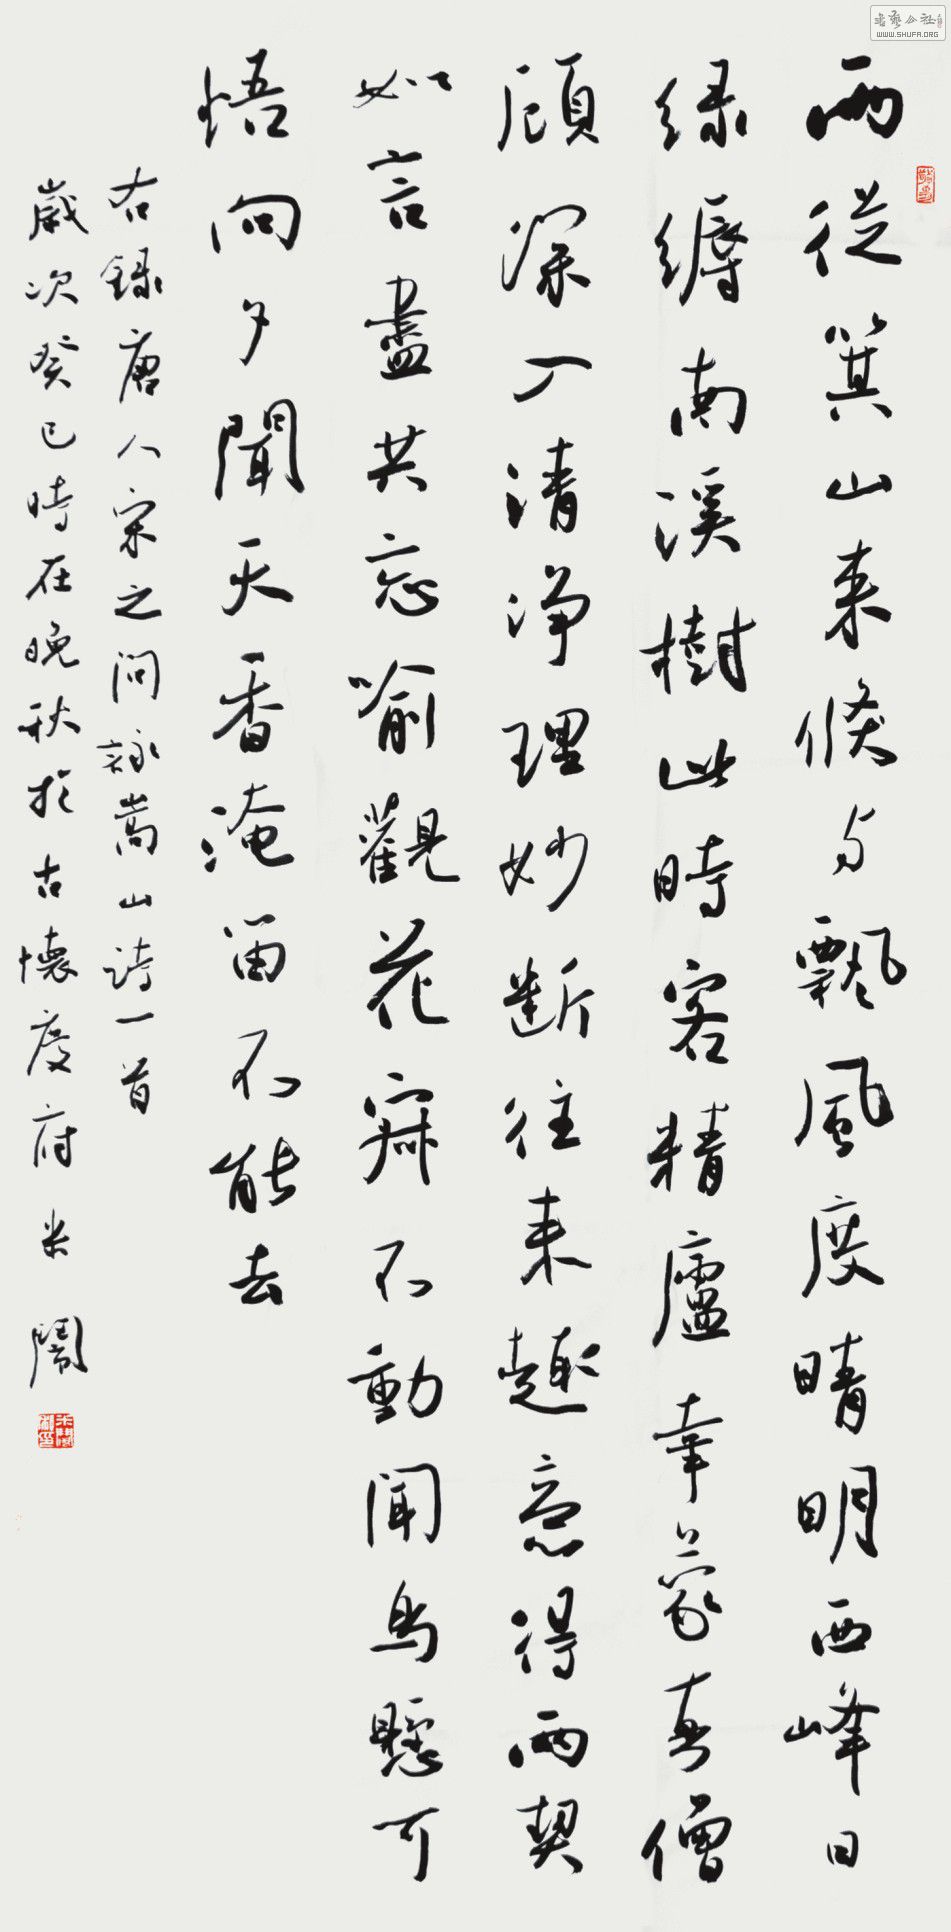 雨從箕山来倏与飄風度晴明西峰日
緑縟南溪樹此時客精廬幸蒙真僧
顧深入清淨理妙断往来趣意得兩契
如言盡共忘喻觀花寂不動聞鸟懸可
悟向夕聞天香淹留不能去
右録唐人宋之问詠嵩山詩一首
歲次癸巳時在晚秋於古懷慶府米鬧
書藝公社
WWW.SHUFA.ORG